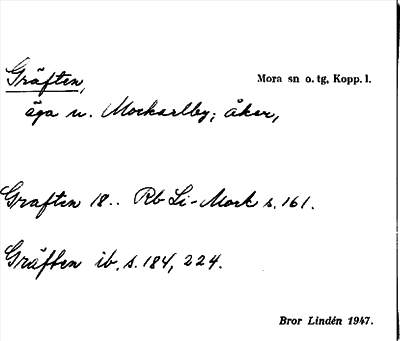 Gräften, Mora sn o. tg, Kopp. l.
äga u. Mockarlby; åker,
Graften 18.. Rb Li-Mock s. 161.
Gräften ib. s. 184, 224.
Bror Lindén 1947.